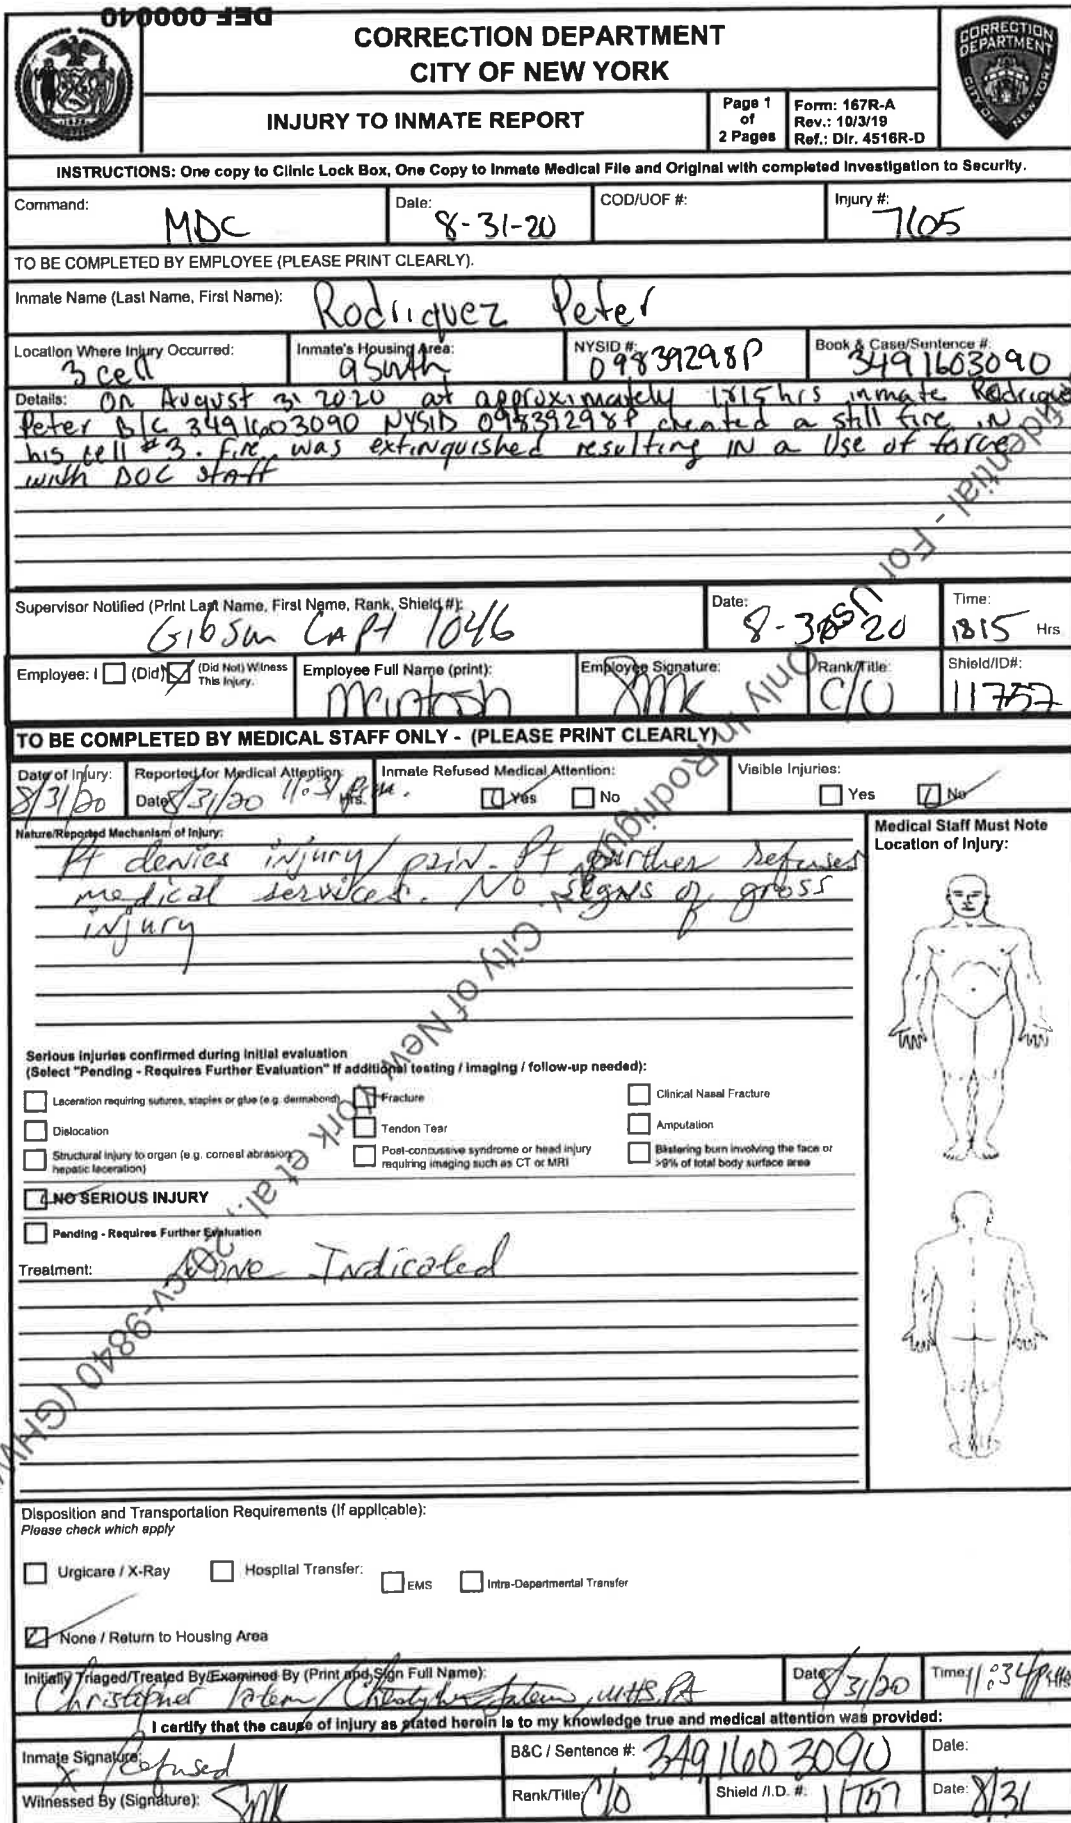 DEF 000040
CORRECTION DEPARTMENT
CITY OF NEW YORK
CORRECTION DEPARTMENT
CITY OF NEW YORK
INJURY TO INMATE REPORT
Page 1 of 2 Pages
Form: 167R-A
Rev.: 10/3/19
Ref.: Dir. 4516R-D
INSTRUCTIONS: One copy to Clinic Lock Box, One Copy to Inmate Medical File and Original with completed Investigation to Security.
Command: MDC Date: 8-31-20 COD/UOF #: Injury #: 7105
TO BE COMPLETED BY EMPLOYEE (PLEASE PRINT CLEARLY).
Inmate Name (Last Name, First Name): Rodriquez Peter
Location Where Injury Occurred: 3 cell Inmate's Housing Area: 9 South NYSID #: 09839298P Book & Case/Sentence #: 3491603090
Details: On August 31 2020 at approximately 1815 hrs inmate Rodrique
Peter B/C 3491603090 NYSID 09839298P created a still fire in
his cell #3. Fire was extinquished resulting in a Use of force
with DOC staff
Supervisor Notified (Print Last Name, First Name, Rank, Shield #): Gibson Capt 1046 Date: 8-3 -20 Time: 1815 Hrs
Employee: I (Did) (Did Not) Witness This Injury. Employee Full Name (print): McIntosh Employee Signature: Rank/Title: C/O Shield/ID#: 11757
TO BE COMPLETED BY MEDICAL STAFF ONLY - (PLEASE PRINT CLEARLY)
Date of Injury: 8/31/20 Reported for Medical Attention: Date 8/31/20 11:31 p.m. Hrs. Inmate Refused Medical Attention: Yes No Visible Injuries: Yes No
Nature/Reported Mechanism of Injury:
Pt denies injury/pain. Pt further refuses
medical services. No signs of gross
injury
Medical Staff Must Note
Location of Injury:
Serious injuries confirmed during initial evaluation
(Select "Pending - Requires Further Evaluation" if additional testing / imaging / follow-up needed):
Laceration requiring sutures, staples or glue (e.g. dermabond) Fracture Clinical Nasal Fracture
Dislocation Tendon Tear Amputation
Structural injury to organ (e.g. corneal abrasion, hepatic laceration) Post-concussive syndrome or head injury requiring imaging such as CT or MRI Blistering burn involving the face or >9% of total body surface area
NO SERIOUS INJURY
Pending - Requires Further Evaluation
Treatment: None Indicated
Disposition and Transportation Requirements (If applicable):
Please check which apply
Urgicare / X-Ray Hospital Transfer: EMS Intra-Departmental Transfer
None / Return to Housing Area
Initially Triaged/Treated By/Examined By (Print and Sign Full Name): Christopher Tatem / Christopher Tatem, MHS, PA Date 8/31/20 Time: 11:34 p Hrs
I certify that the cause of injury as stated herein is to my knowledge true and medical attention was provided:
Inmate Signature: X Refused B&C / Sentence #: 3491603090 Date:
Witnessed By (Signature): Rank/Title: C/O Shield /I.D. #: 11757 Date: 8/31
Confidential - For Use Only In Rodriguez v. City of New York et al., 20cv-9840 (GHW